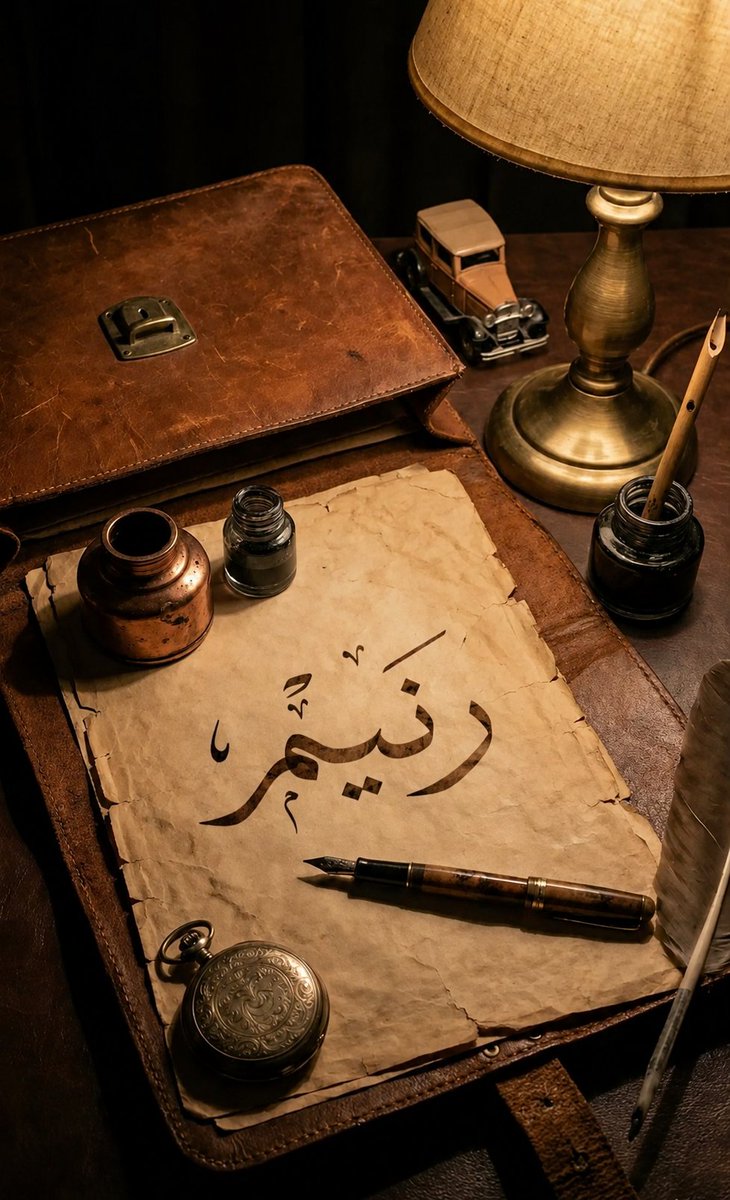 رنيم